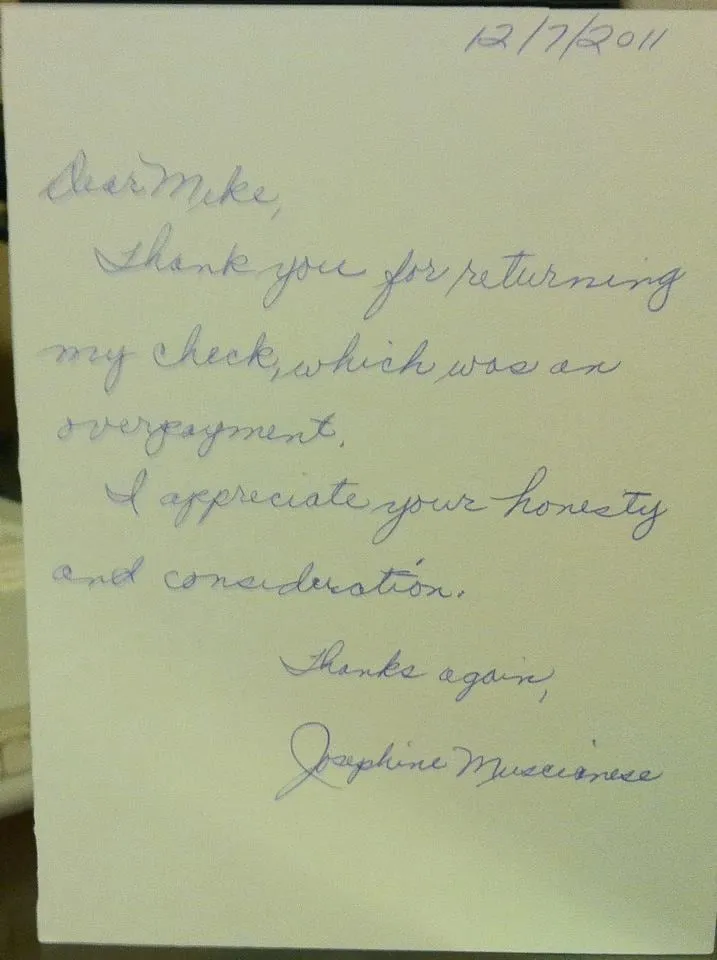 12/7/2011
Dear Mike,
Thank you for returning
my check, which was an
overpayment.
I appreciate your honesty
and consideration.
Thanks again,
Josephine Muscianese